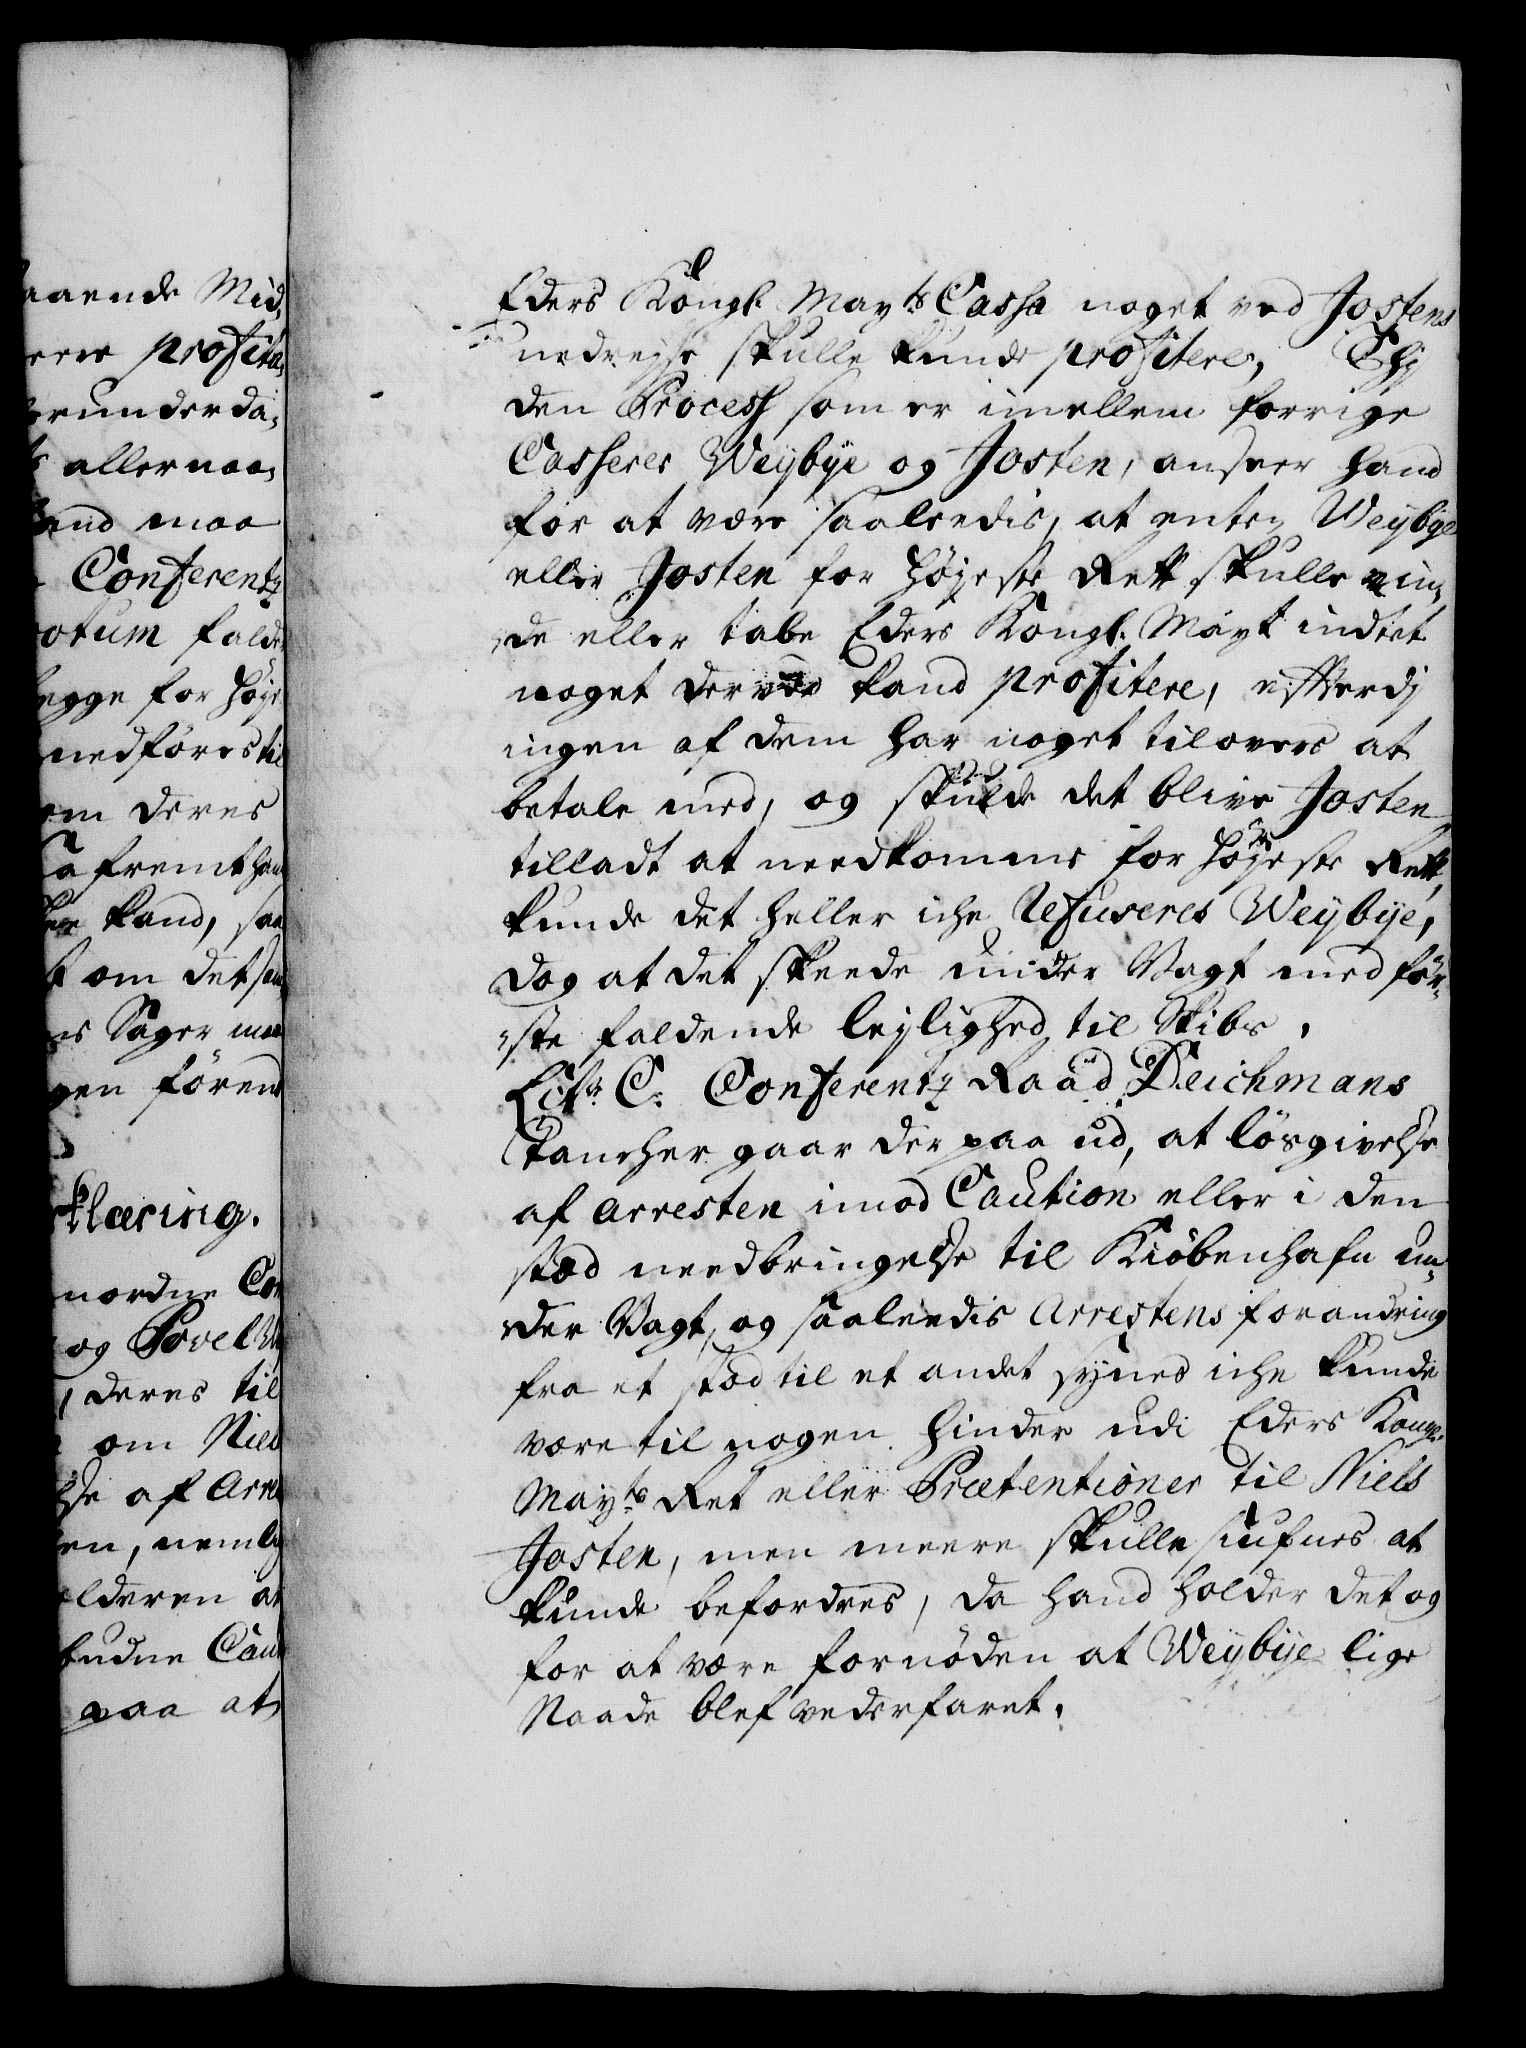 aaende Mid,
eere profite,
erunderda,
allernaa,
and maa
Conferentz
otum falde
egge for høje
nedføres til
om deres
kand, saa
om det sam
Sager maa
gen førend
klæring.
nordne Con
og Povel W
deres til
om Niels
lse af Arre
en, nemlig
olderen at
budne Cau
paa at
Eders Kongl. Mayts Cassa noget ved Jostens
nedrejse skulle kunde profitere, Thj
den Process som er imellem forrige
Casserer Weybye og Josten, anseer hand
for at være saaleedis, at enten Weybye
eller Josten for Højeste Rett skulle vin,
,de eller tabe Eders Kongl. Mayt indtet
noget derved kand profitere, efterdj
ingen af dem har noget tilovers at
betale med, og skulde det blive Josten
tilladt at needkomme for Højeste Rett,
kunde det heller iche refuseres Weybye,
dog at det skeede under Vagt med før,
,ste faldende lejlighed til Skibs.
Litr. C. Conferentz Raad Deichmans
Tancher gaar der paa ud, at løsgivelse
af Arresten imod Caution eller i den
stæd needbringelse til Kiøbenhafn un,
,der Vagt, og saaleedis Arrestens forandring
fra et stæd til et andet synes iche kunde
være til nogen hinder udi Eders Kongl.
Mayts Ret eller Prætentioner til Niels
Josten, men meere skulle siufnes at
kunde befordres, da hand holder det og
for at være fornøden at Weybye lige
Naade blef vederfaret.